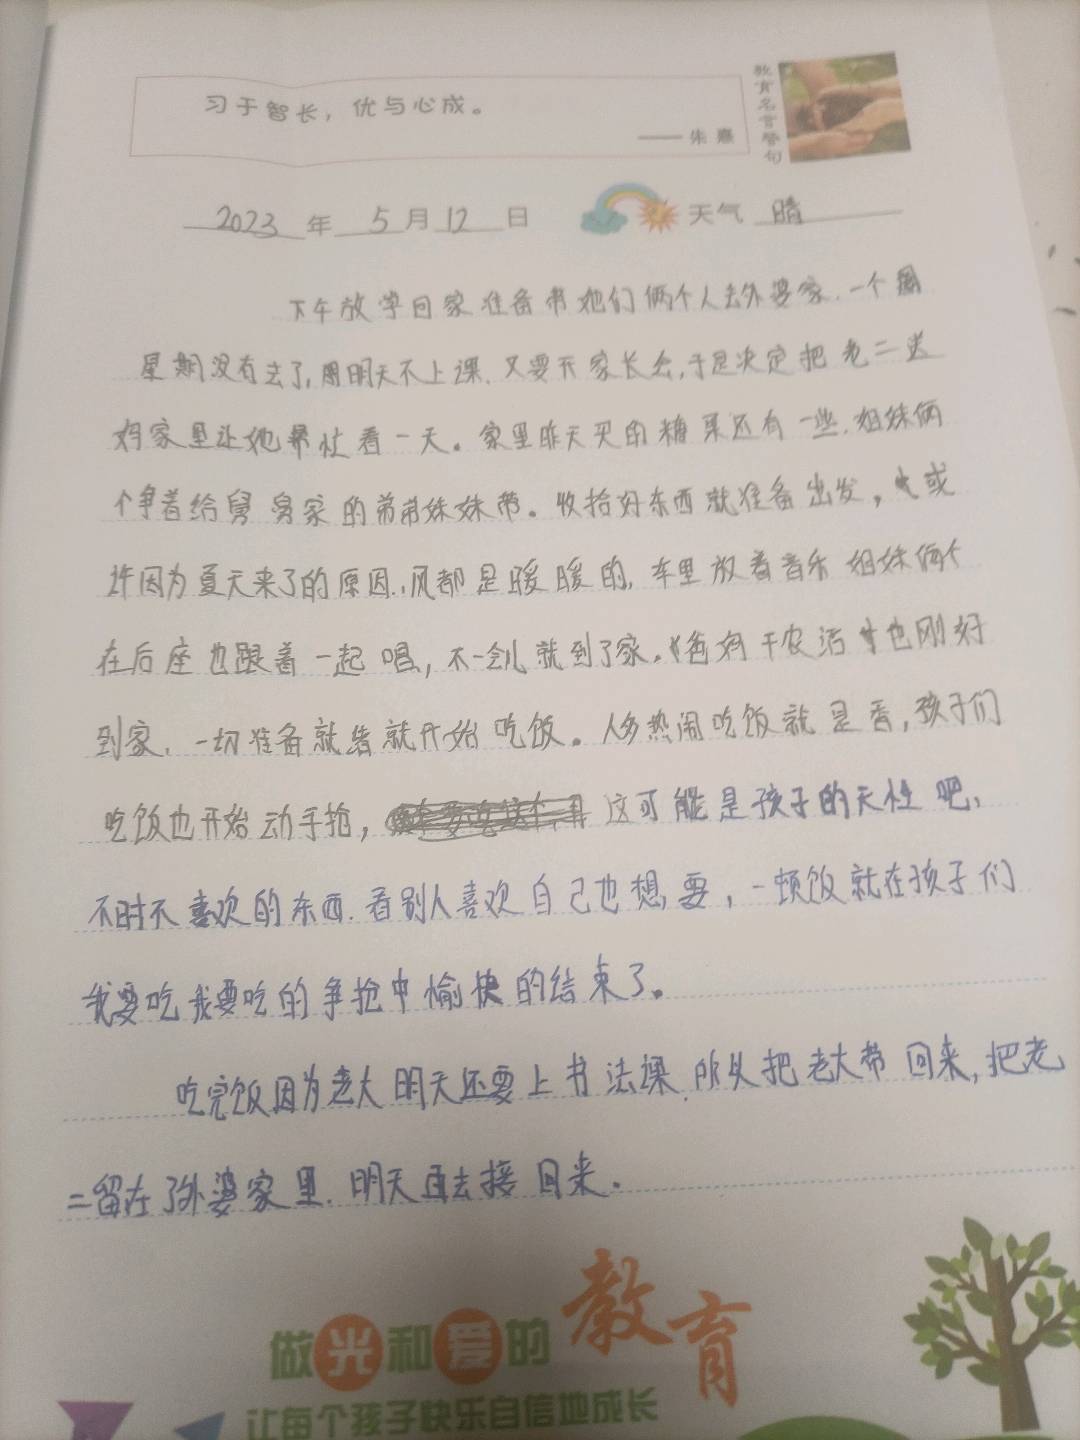 习于智长，优与心成。
——朱熹
教育名言警句
2023年5月12日 天气 晴
下午放学回家准备带她们俩个人去外婆家.一个
星期没有去了,周明天不上课.又要开家长会,于是决定把老二送
妈家里让她帮忙看一天。家里昨天买的糖果还有一些.姐妹俩
个争着给舅舅家的弟弟妹妹带。收拾好东西就准备出发，或
许因为夏天来了的原因.,风都是暖暖的,车里放着音乐姐妹俩个
在后座也跟着一起唱,不一会儿就到了家.爸妈干农活也刚好
到家.一切准备就绪就开始吃饭。人多热闹吃饭就是香,孩子们
吃饭也开始动手抢,这可能是孩子的天性吧,
不时不喜欢的东西.看别人喜欢自己也想要，一顿饭就在孩子们
我要吃我要吃的争抢中愉快的结束了。
吃完饭因为老大明天还要上书法课.所以把老大带回来,把老
二留在了外婆家里.明天再去接回来.
做光和爱的教育
让每个孩子快乐自信地成长